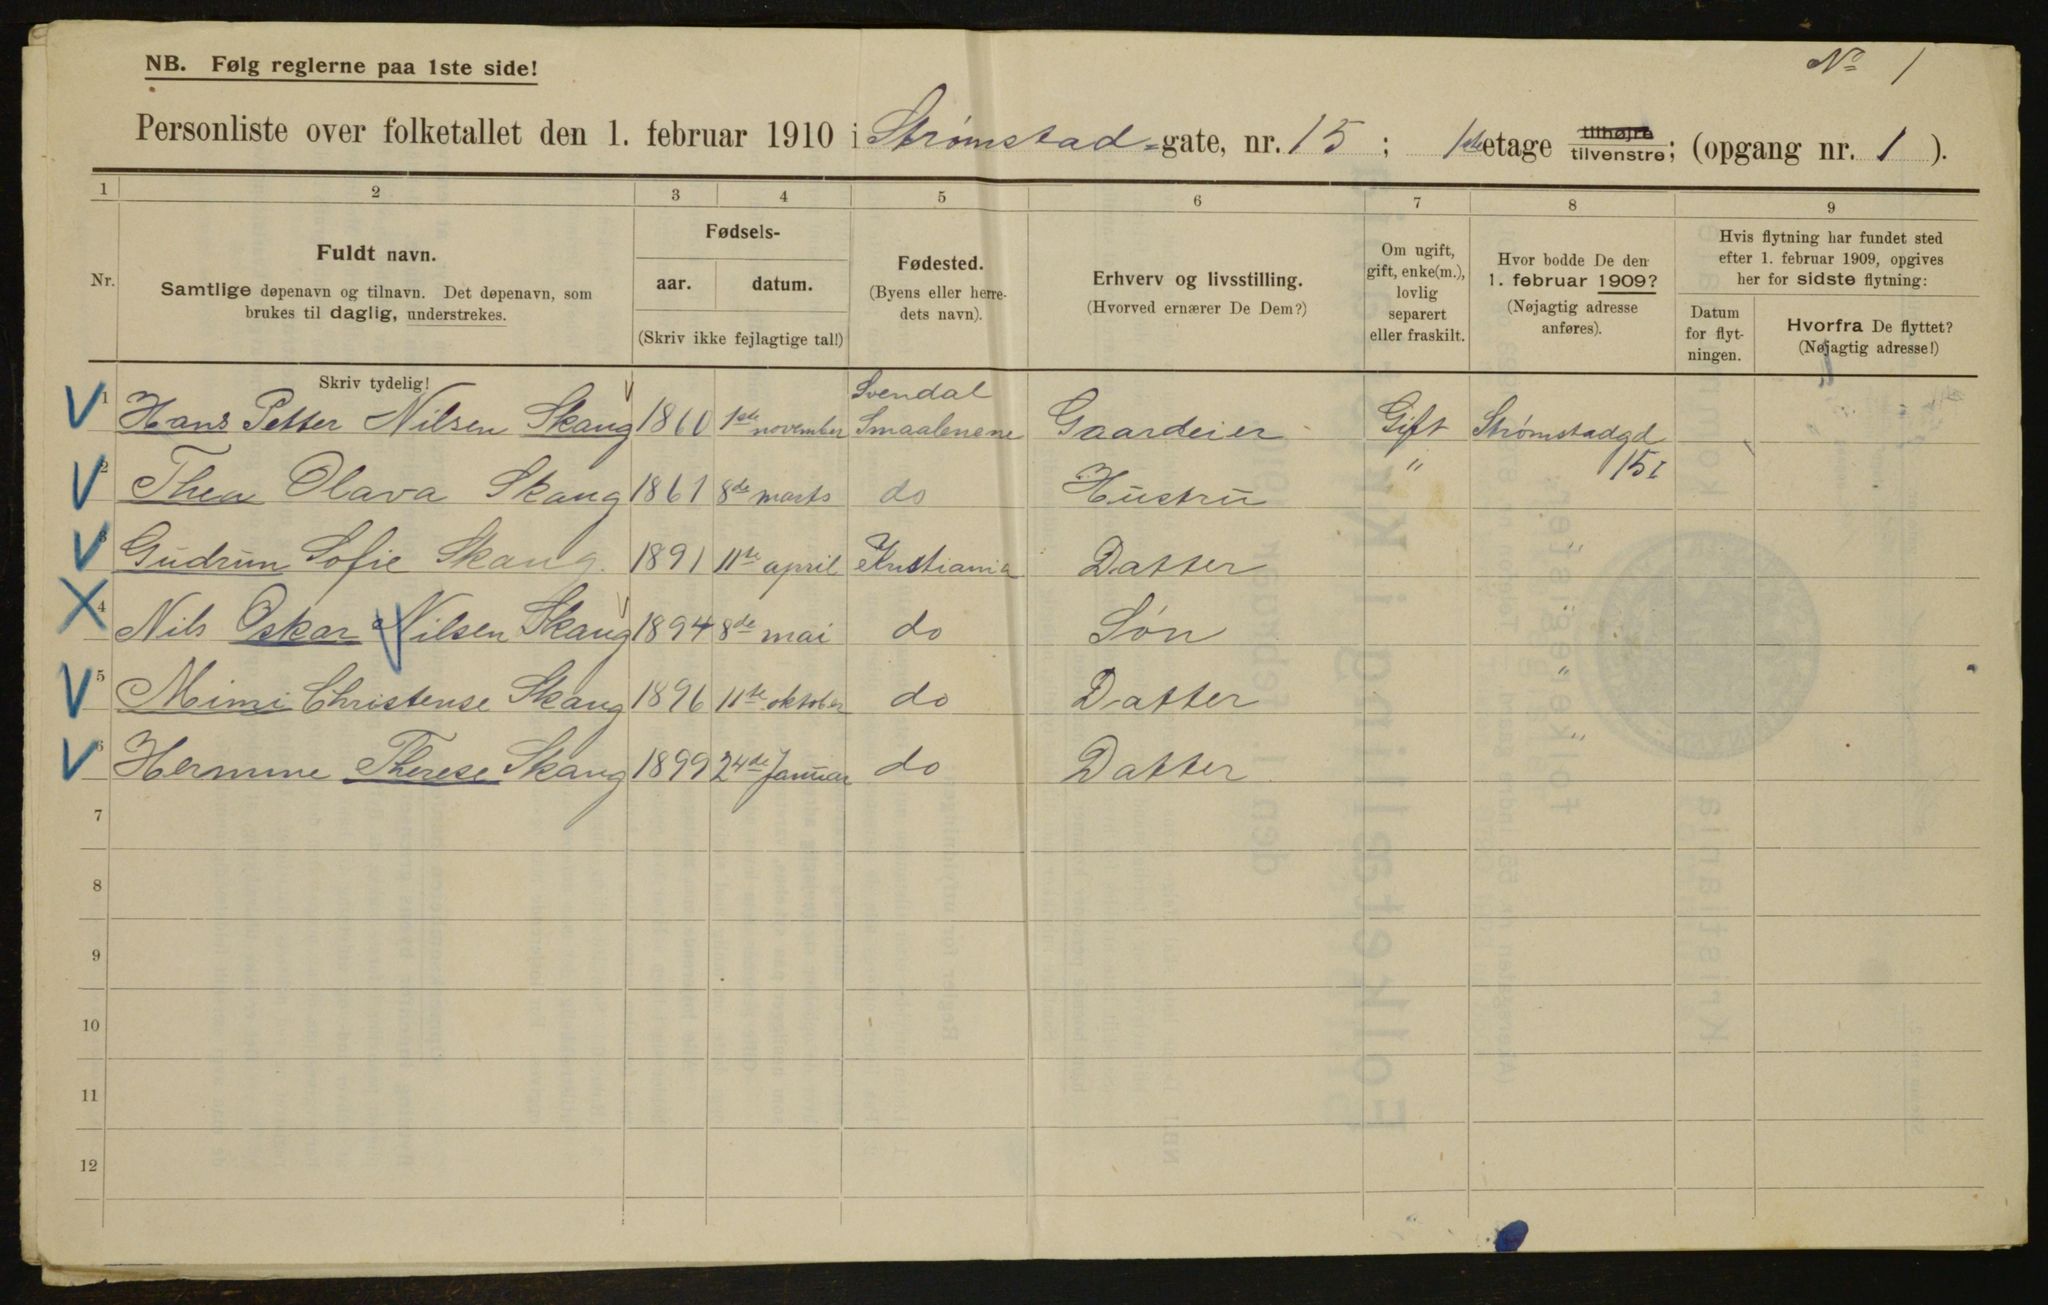 No 1
NB. Følg reglerne paa 1ste side!
Personliste over folketallet den 1. februar 1910 i Strømstad-gate, nr. 15 ; 1ste etage tilhøjre tilvenstre; (opgang nr. 1 ).
1 2 3 4 5 6 7 8 9
Nr.
Fuldt navn.
Samtlige døpenavn og tilnavn. Det døpenavn, som
brukes til daglig, understrekes.
Fødsels-
aar. datum.
(Skriv ikke fejlagtige tal!)
Fødested.
(Byens eller herre-
dets navn).
Erhverv og livsstilling.
(Hvorved ernærer De Dem?)
Om ugift,
gift, enke(m.),
lovlig
separert
eller fraskilt.
Hvor bodde De den
1. februar 1909?
(Nøjagtig adresse
anføres).
Hvis flytning har fundet sted
efter 1. februar 1909, opgives
her for sidste flytning:
Datum
for flyt-
ningen.
Hvorfra De flyttet?
(Nøjagtig adresse!)
Skriv tydelig!
1 Hans Petter Nilsen Skaug 1860 1ste november Svendal Smaalenene Gaardeier Gift Strømstadgd
2 Thea Olava Skaug 1861 8de marts do Hustru " 15 I
3 Gudrun Sofie Skaug. 1891 11te april Kristiania Datter "
4 Nils Oskar Nilsen Skaug 1894 8de mai do Søn "
5 Mimi Christense Skaug 1896 11te oktober do Datter "
6 Hermine Therese Skaug 1899 24de Januar do Datter "
7
8
9
10
11
12